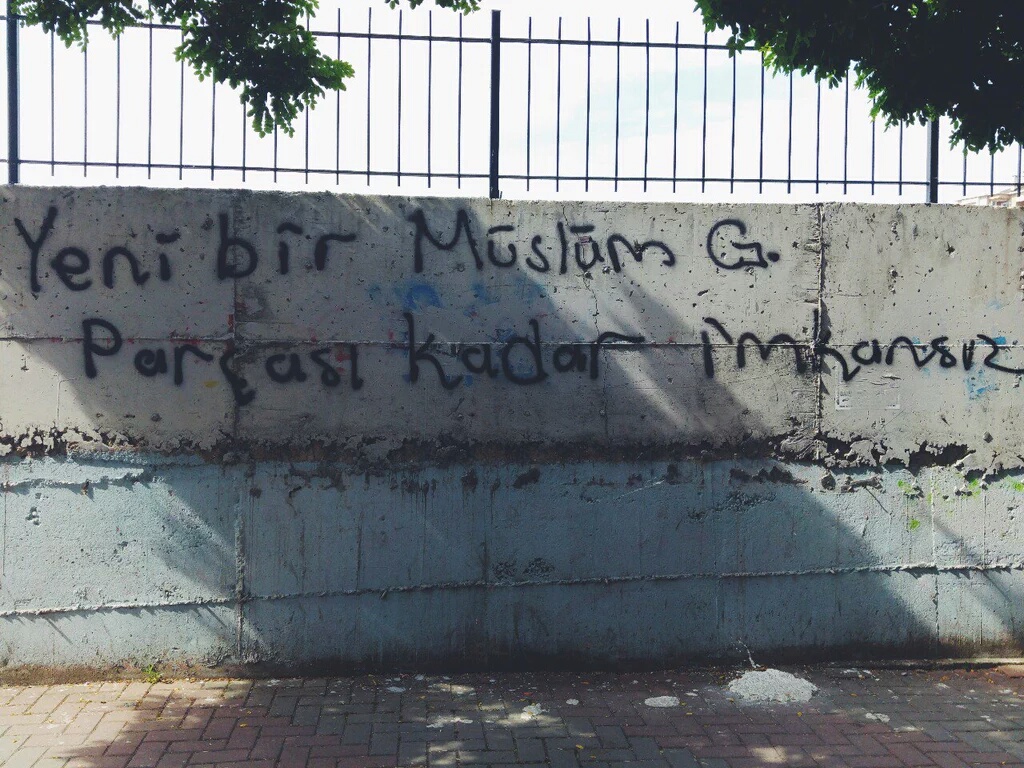 Yeni bir Müslüm G.
Parçası kadar imkansız